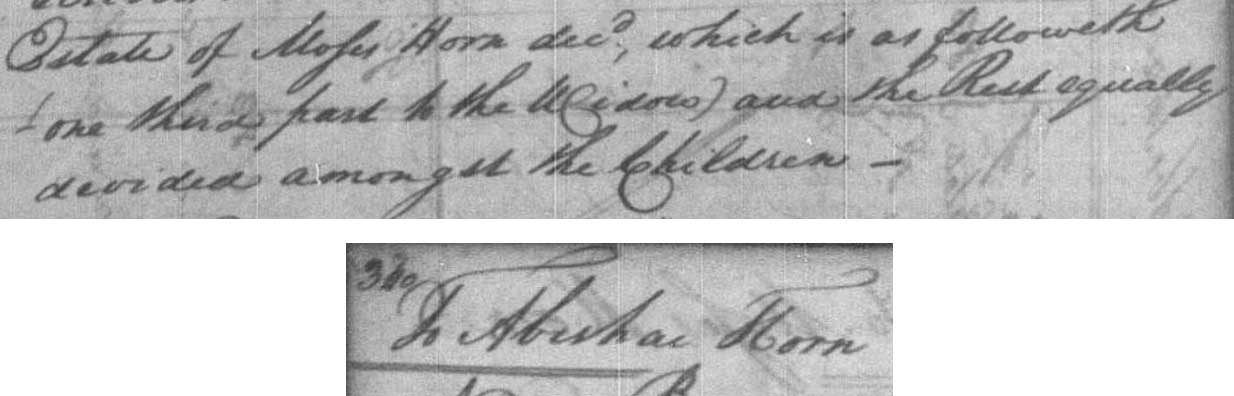 Estate of Moses Horn decd, which is as followeth
one third part to the Widow) and the Rest equally
devided amongst the Children –
To Abishai Horn